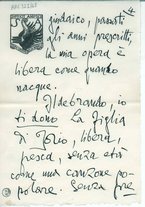 4
giudaico, passati
gli anni prescritti,
la mia opera è
libera come quando
nacque.
Ildebrando, io
ti dono La Figlia
di Jorio, libera,
fresca, senza età
come una canzone po-
polare. Senza